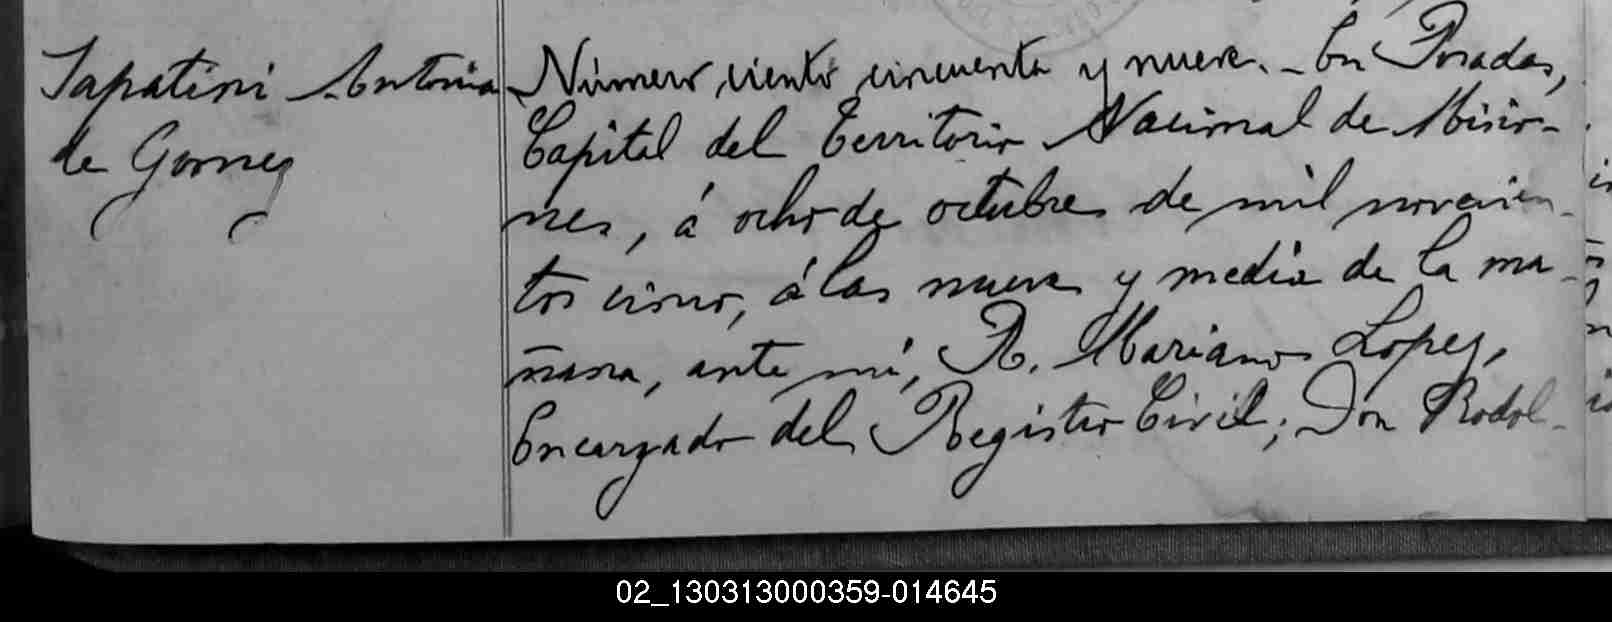 Sapatini Antonia
de Gomez
Número ciento cincuenta y nueve. - En Posadas,
Capital del Territorio Nacional de Misio-
nes, á ocho de octubre de mil novecien-
tos cinco, á las nueve y media de la ma-
ñana, ante mí, R. Mariano Lopez,
Encargado del Registro Civil; Don Rodol-
02_130313000359-014645